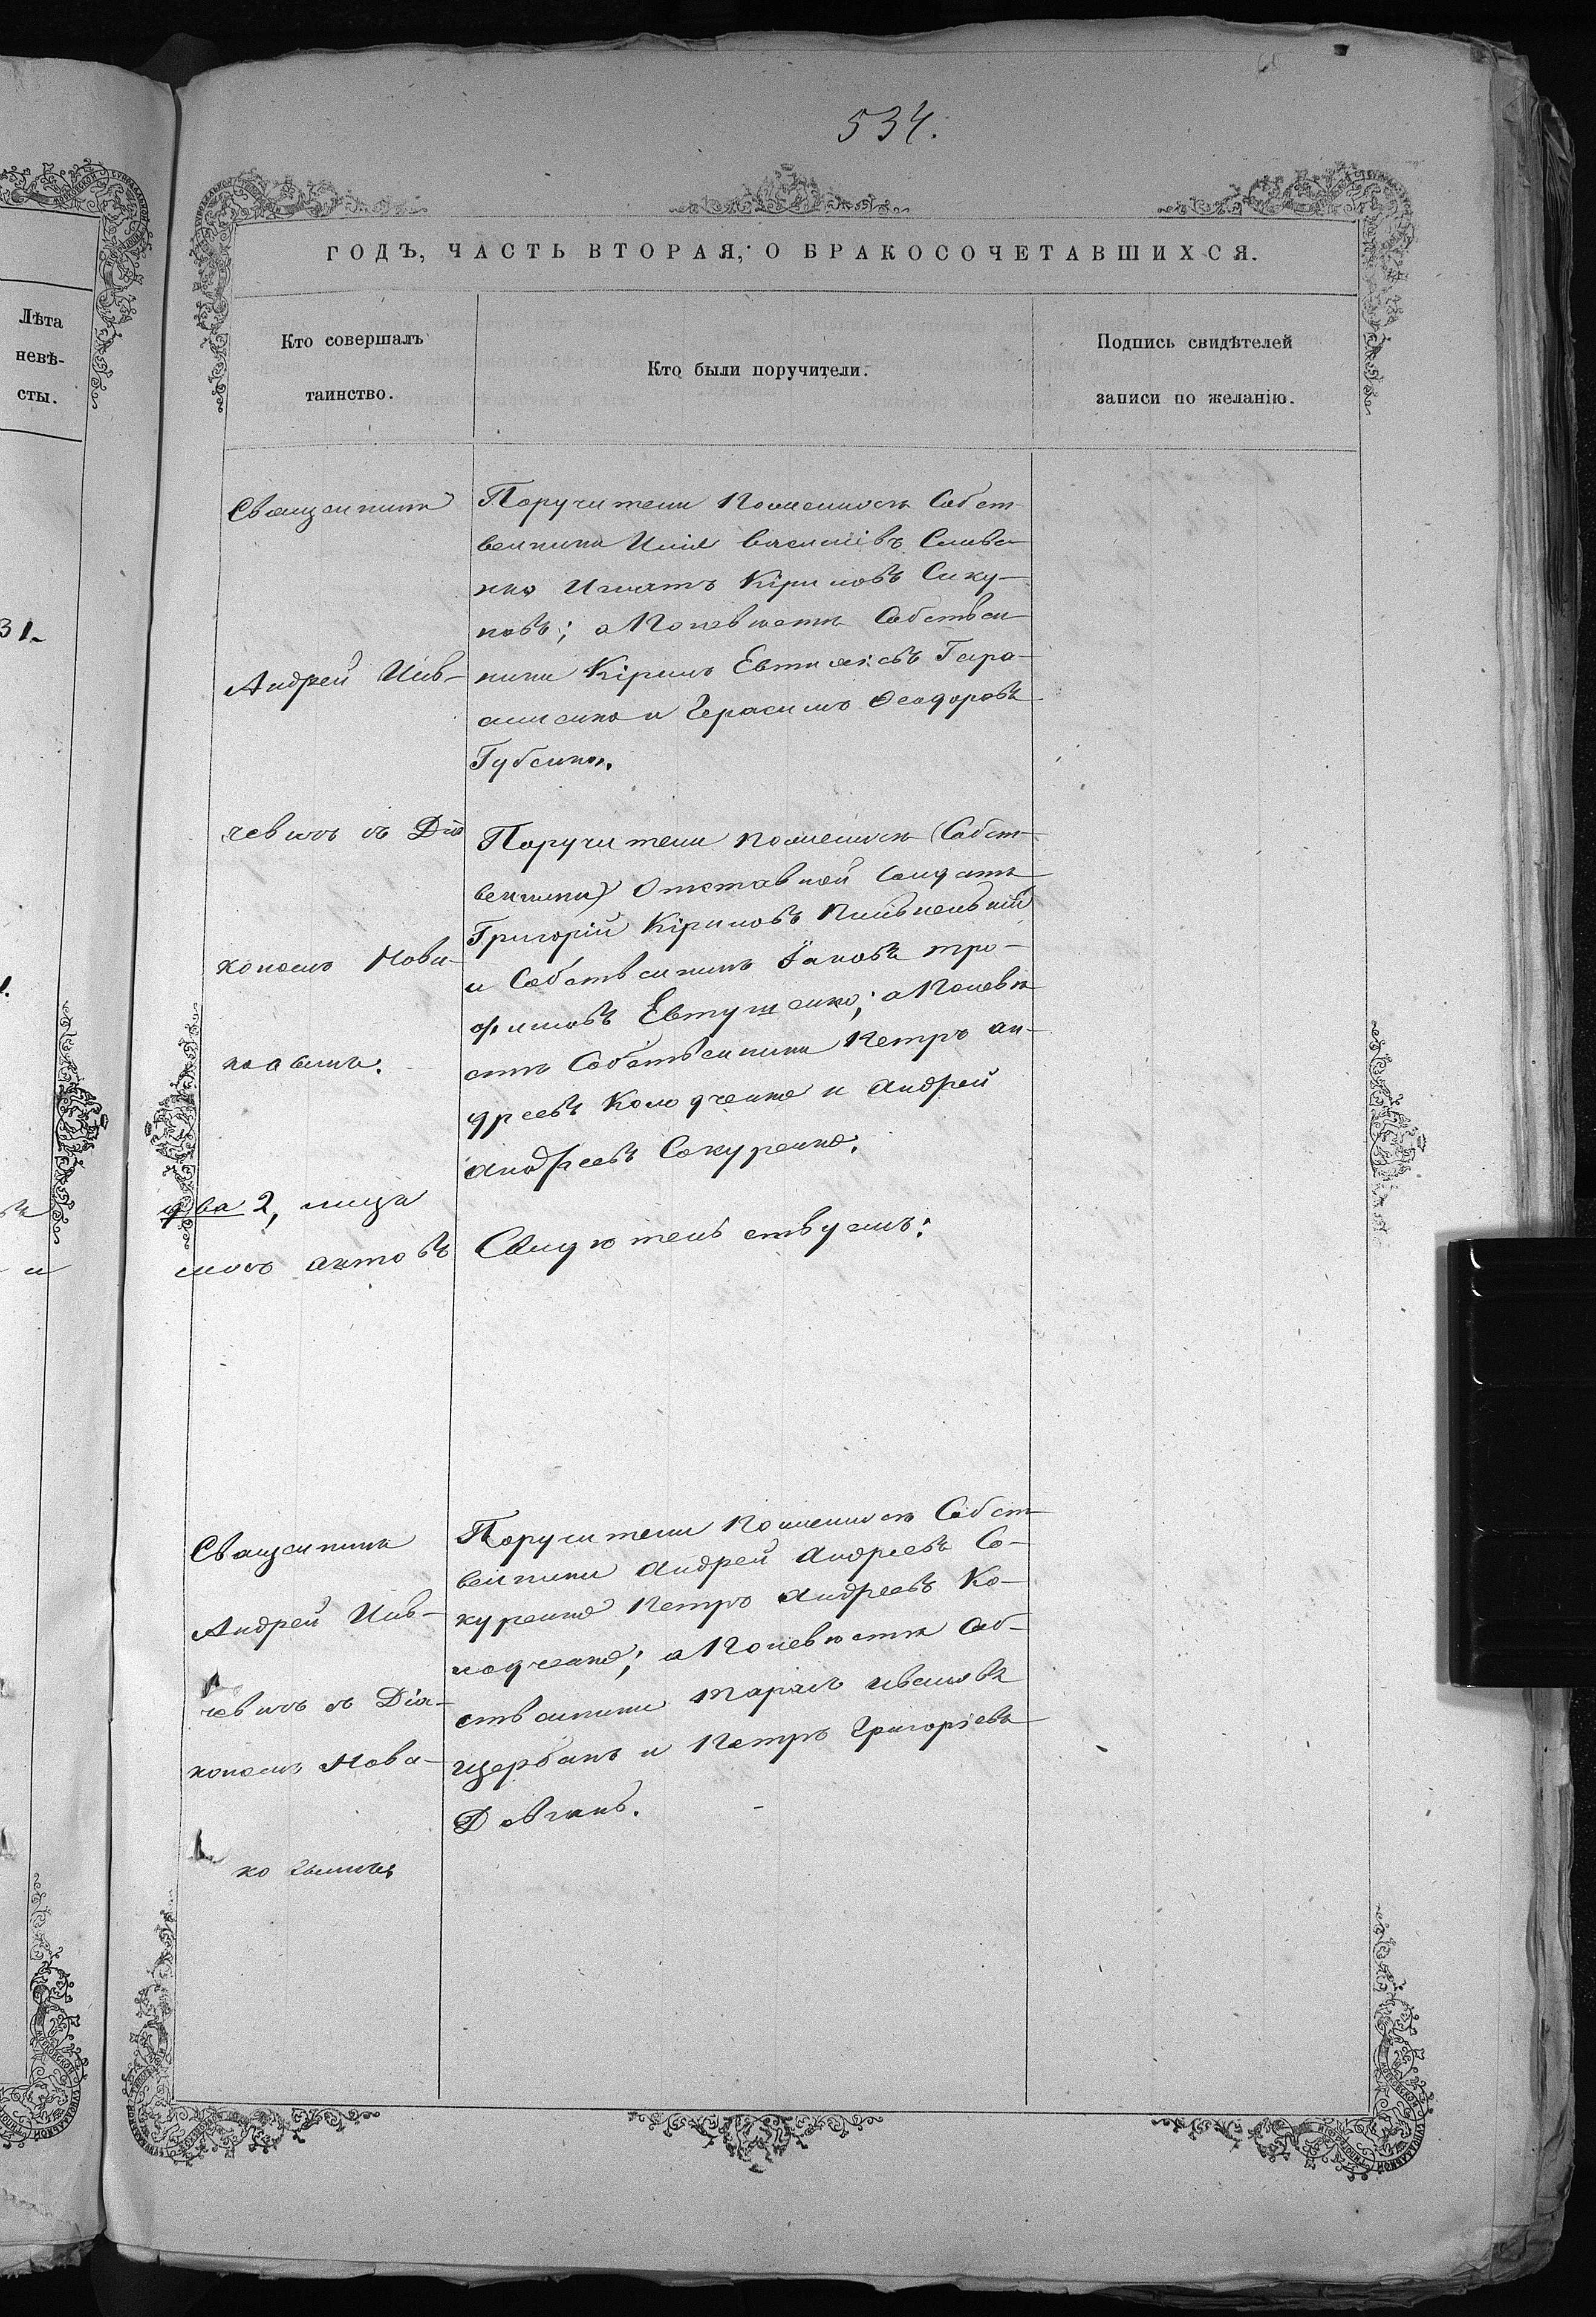 534.
ГОДЪ, ЧАСТЬ ВТОРАЯ, О БРАКОСОЧЕТАВШИХСЯ.
Лѣта
невѣ-
сты.
Кто совершалъ
таинство.
Кто были поручители.
Подпись свидѣтелей
записи по желанію.
31.
Священникъ
Андрей
чевичъ съ Діа
кономъ Нова
Поручители по женихѣ Собст
венники
Игнатъ Кіриловъ
а по невѣстѣ Собствен
ники Кірилъ Евтихіевъ Гера-
сименко и Герасимъ Ѳеодоровъ
Губенко.
Поручители по женихѣ (Собст
венники) Отставной Солдатъ
Григорій Кіриловъ
и Собственникъ Іаковъ Тро-
фимовъ Евтушенко; а по невѣ
стѣ Собственники Петръ Ан-
дреевъ Колодченко и Андрей
Андреевъ Сокуренко.
два 2, лица
актовъ
Свидѣтельствуемъ:
Священникъ
Андрей
чевичъ съ Діа-
кономъ Нова-
Поручители по женихѣ Собст
венники Андрей Андреевъ Со-
куренко Петръ Андреевъ Ко-
лодченко; а по невѣстѣ Соб-
ственники Тарасъ Ивановъ
Щербакъ и Петръ Григоріевъ
Довгань.